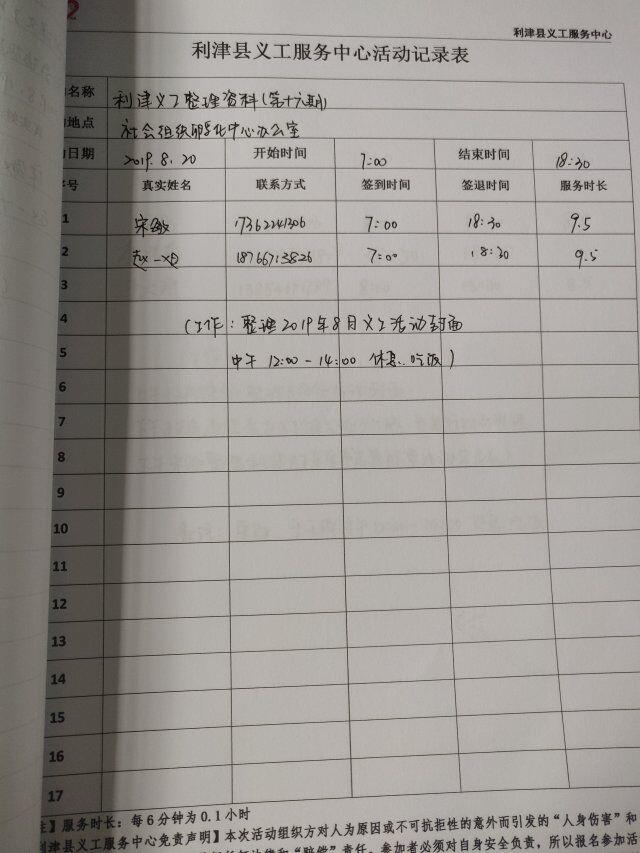 利津县义工服务中心
利津县义工服务中心活动记录表
名称 利津义工整理资料(第十六期)
地点 社会组织孵化中心办公室
日期 2019.8.20 开始时间 7:00 结束时间 18:30
号 真实姓名 联系方式 签到时间 签退时间 服务时长
1 宋敏 17362241306 7:00 18:30 9.5
2 赵一 18766713826 7:00 18:30 9.5
3
4 (工作:整理2019年8月义工活动封面
5 中午 12:00-14:00 休息..吃饭)
6
7
8
9
10
11
12
13
14
15
16
17
】服务时长:每6分钟为0.1小时
利津县义工服务中心免责声明】本次活动组织方对人为原因或不可抗拒性的意外而引发的“人身伤害”和
和“赔偿”责任。参加者必须对自身安全负责,所以报名参加活